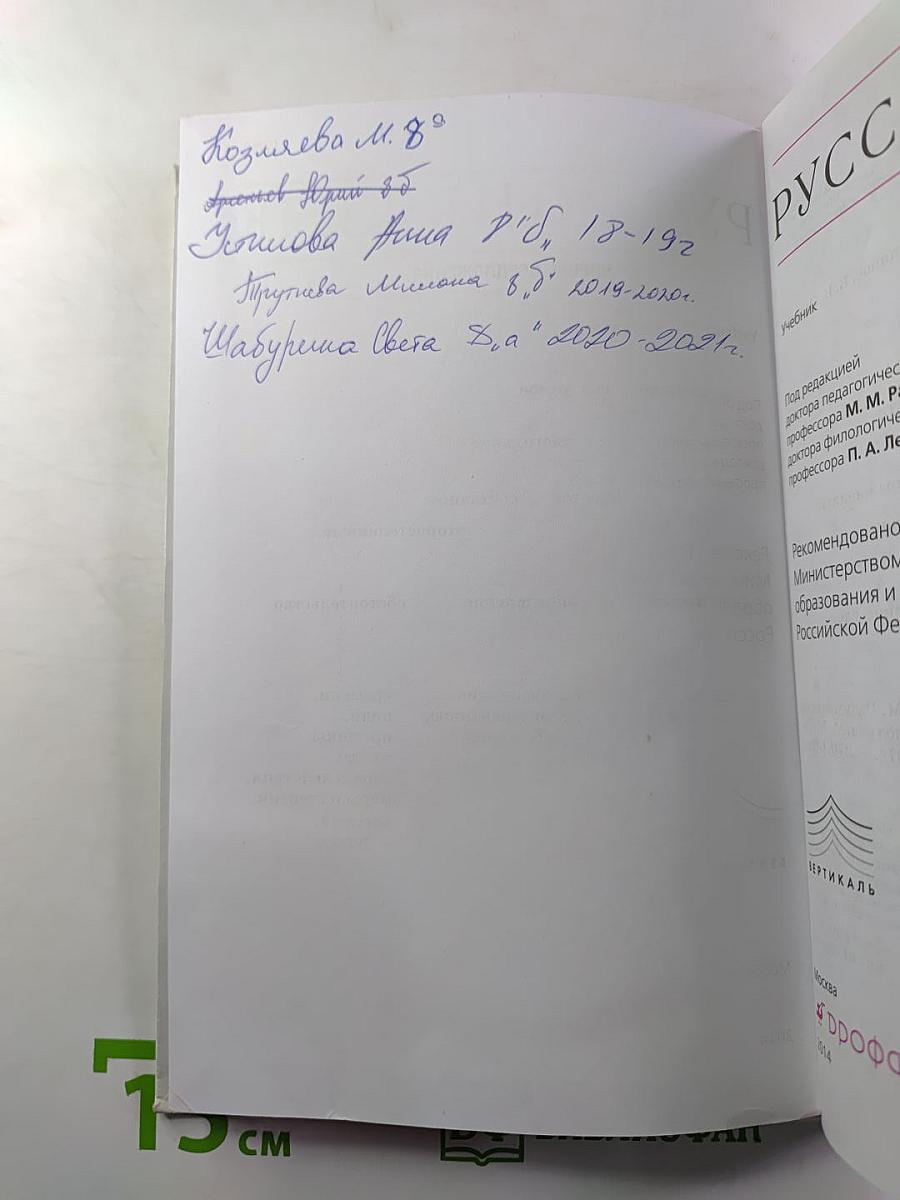 Козляева М. 8а
Арсеньев Юрий 8б
Устилова Анна 8"б„ 18-19г
Трутнева Милана 8„б" 2019-2020г.
Шабурина Света 8„а" 2020-2021г.
РУСС
Учебник
Под редакцией
доктора педагогичес
профессора М. М. Ра
доктора филологиче
профессора П. А. Ле
Рекомендовано
Министерством
образования и
Российской Фе
ВЕРТИКАЛЬ
Москва
ДРОФА
2014
15 см
БИБЛИОФАН